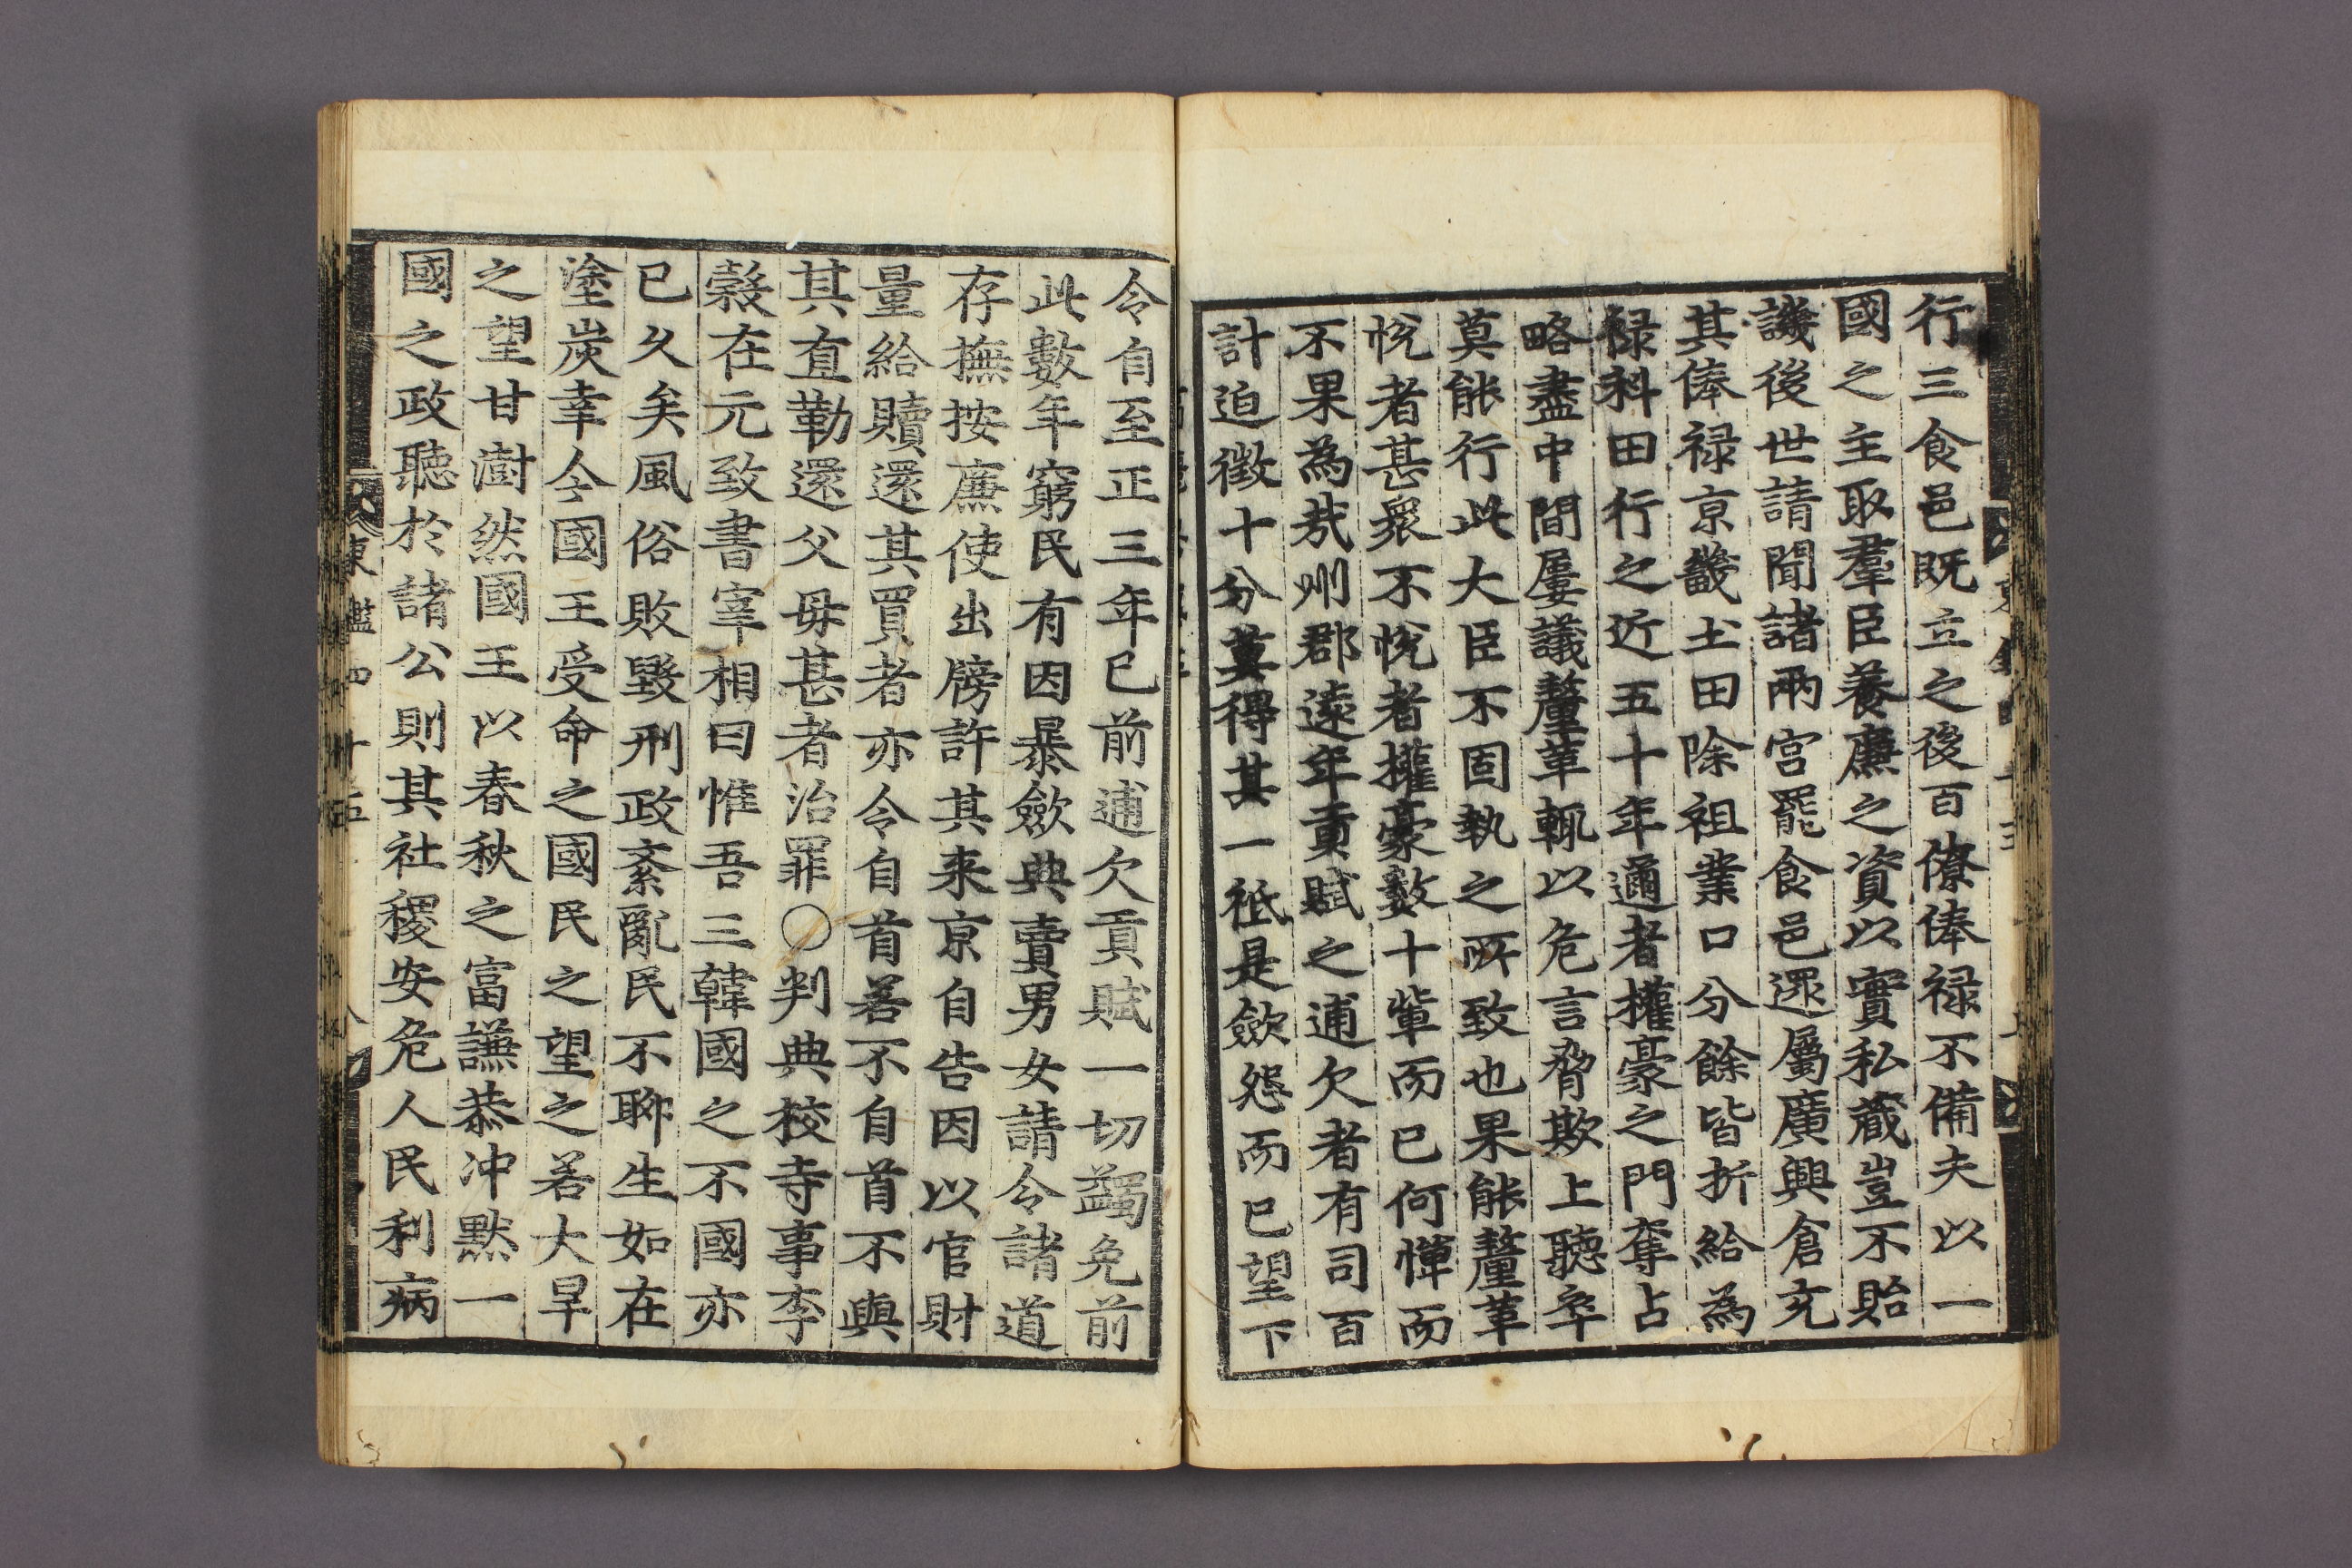 行三食邑既立之後百僚俸禄不備夫以一
國之主取羣臣養廉之資以實私蔵豈不貽
譏後世請聞諸兩宮罷食邑還屬廣興倉充
其俸禄京畿土田除祖業口分餘皆折給為
禄科田行之近五十年邇者權豪之門奪占
略盡中間屢議釐革輒以危言脅欺上聽卒
莫能行此大臣不固執之所致也果能釐革
悅者甚衆不悅者權豪數十軰而已何憚而
不果為㢤州郡遠年貢賦之逋欠者有司百
計迫徵十分莫得其一祗是歛怨而已望下
令自至正三年已前逋欠貢賦一切蠲免前
此數年窮民有因暴歛典賣男女請令諸道
存撫按廉使出牓許其来京自告因以官財
量給贖還其買者亦令自首若不自首不與
其直勒還父母甚者治罪○判典校寺事李
糓在元致書宰相曰惟吾三韓國之不國亦
已久矣風俗敗毀刑政紊亂民不聊生如在
塗炭幸今國王受命之國民之望之若大旱
之望甘澍然國王以春秋之富謙恭冲黙一
國之政聽於諸公則其社稷安危人民利病
東鑑四十五
八